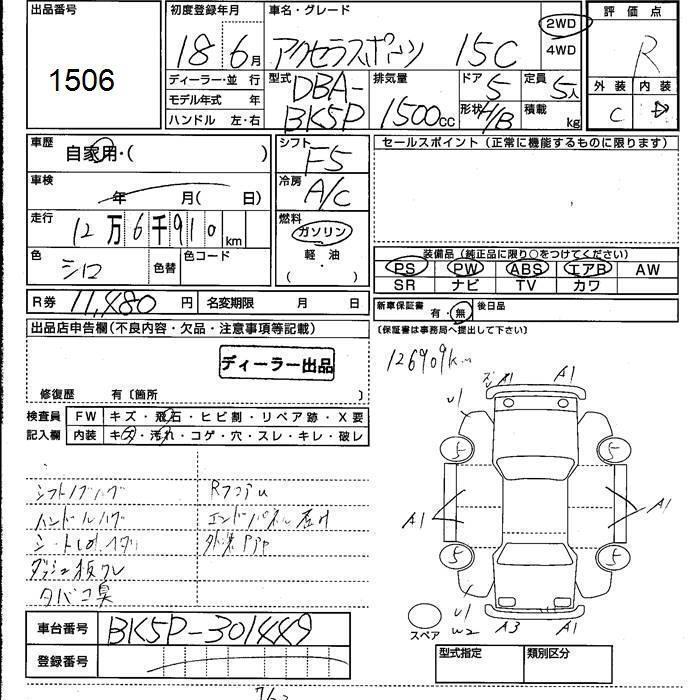 出品番号
1506
初度登録年月
18 6月
ディーラー・並 行
モデル年式 年
ハンドル 左・右
車名・グレード
アクセラスポーツ 15C
型式 DBA-BK5P
排気量 1500cc
2WD
4WD
ドア 5
形状 H/B
定員 5人
積載 kg
評価点
R
外装 内装
C D
車歴
自家用・( )
車検
年 月( 日)
走行
12万6千910km
色
シロ
色替
色コード
シフト
F5
冷房
A/C
燃料
ガソリン
軽 油
( ・ )
セールスポイント(正常に機能するものに限ります)
装備品(純正品に限り○をつけてください)
PS PW ABS エアB AW
SR ナビ TV カワ
R券 11,480 円
名変期限 月 日
新車保証書 有・無
後日品
(保証書は事務局へ提出して下さい)
出品店申告欄(不良内容・欠品・注意事項等記載)
ディーラー出品
修復歴 有〔箇所 〕
検査員
記入欄
FW キズ・飛石・ヒビ割・リペア跡・X要
内装 キズ・汚れ・コゲ・穴・スレ・キレ・破レ
126909km
U1 A1 A1
5 5
A1 A1
5 5
U1
W2 A3 A1
スペア
シフトノブハゲ
ハンドルハゲ
タバコ臭
車台番号 BK5P-301449
登録番号
型式指定
類別区分